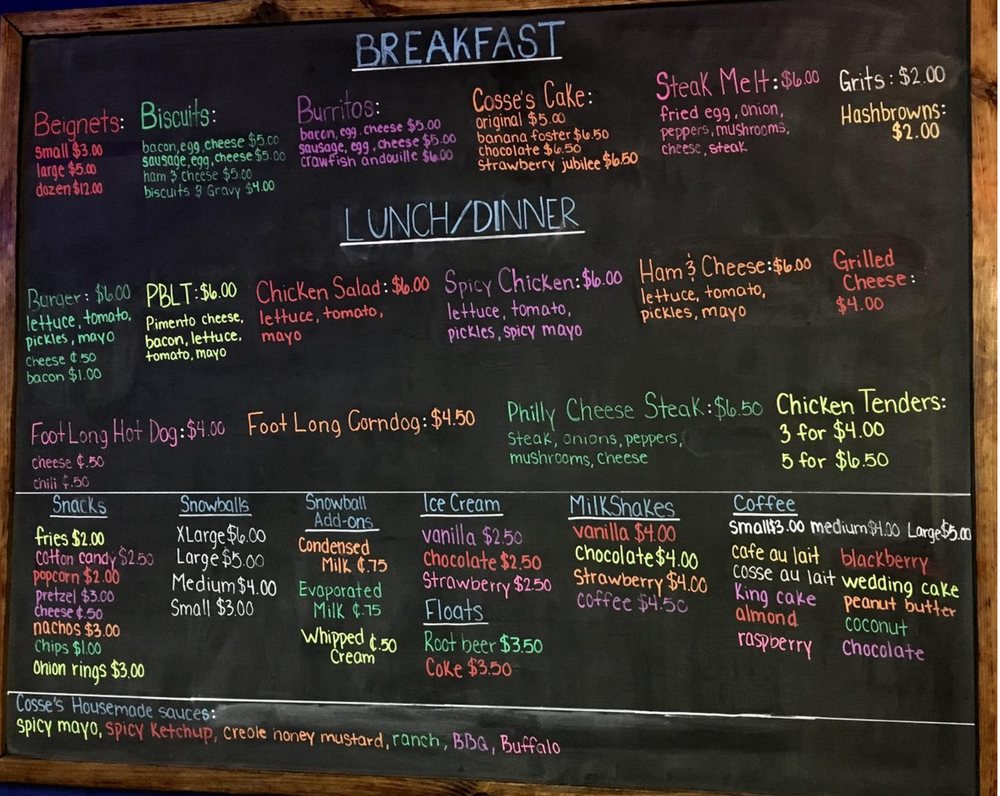 BREAKFAST
Beignets:
small $3.00
large $5.00
dozen $12.00
Biscuits:
bacon, egg, cheese $5.00
sausage, egg, cheese $5.00
ham & cheese $5.00
biscuits & Gravy $4.00
Burritos:
bacon, egg, cheese $5.00
sausage, egg, cheese $5.00
crawfish andouille $6.00
Cosse's Cake:
original $5.00
banana foster $6.50
chocolate $6.50
strawberry jubilee $6.50
Steak Melt: $6.00
fried egg, onion,
peppers, mushrooms,
cheese, steak
Grits: $2.00
Hashbrowns:
$2.00
LUNCH/DINNER
Burger: $6.00
lettuce, tomato,
pickles, mayo
cheese ¢.50
bacon $1.00
PBLT: $6.00
Pimento cheese,
bacon, lettuce,
tomato, mayo
Chicken Salad: $6.00
lettuce, tomato,
mayo
Spicy Chicken: $6.00
lettuce, tomato,
pickles, spicy mayo
Ham & Cheese: $6.00
lettuce, tomato,
pickles, mayo
Grilled
Cheese:
$4.00
Foot Long Hot Dog: $4.00
cheese ¢.50
chili ¢.50
Foot Long Corndog: $4.50
Philly Cheese Steak: $6.50
steak, onions, peppers,
mushrooms, cheese
Chicken Tenders:
3 for $4.00
5 for $6.50
Snacks
fries $2.00
cotton candy $2.50
popcorn $2.00
pretzel $3.00
cheese ¢.50
nachos $3.00
Chips $1.00
onion rings $3.00
Snowballs
XLarge $6.00
Large $5.00
Medium $4.00
Small $3.00
Snowball
Add-ons
Condensed
Milk ¢.75
Evaporated
Milk ¢.75
Whipped ¢.50
Cream
Ice Cream
vanilla $2.50
chocolate $2.50
Strawberry $2.50
Floats
Root beer $3.50
Coke $3.50
MilkShakes
vanilla $4.00
chocolate $4.00
Strawberry $4.00
coffee $4.50
Coffee
small $3.00 medium $4.00 Large $5.00
cafe au lait
cosse au lait
King cake
almond
raspberry
blackberry
wedding cake
peanut butter
coconut
chocolate
Cosse's Housemade sauces:
spicy mayo, spicy Ketchup, creole honey mustard, ranch, BBQ, Buffalo